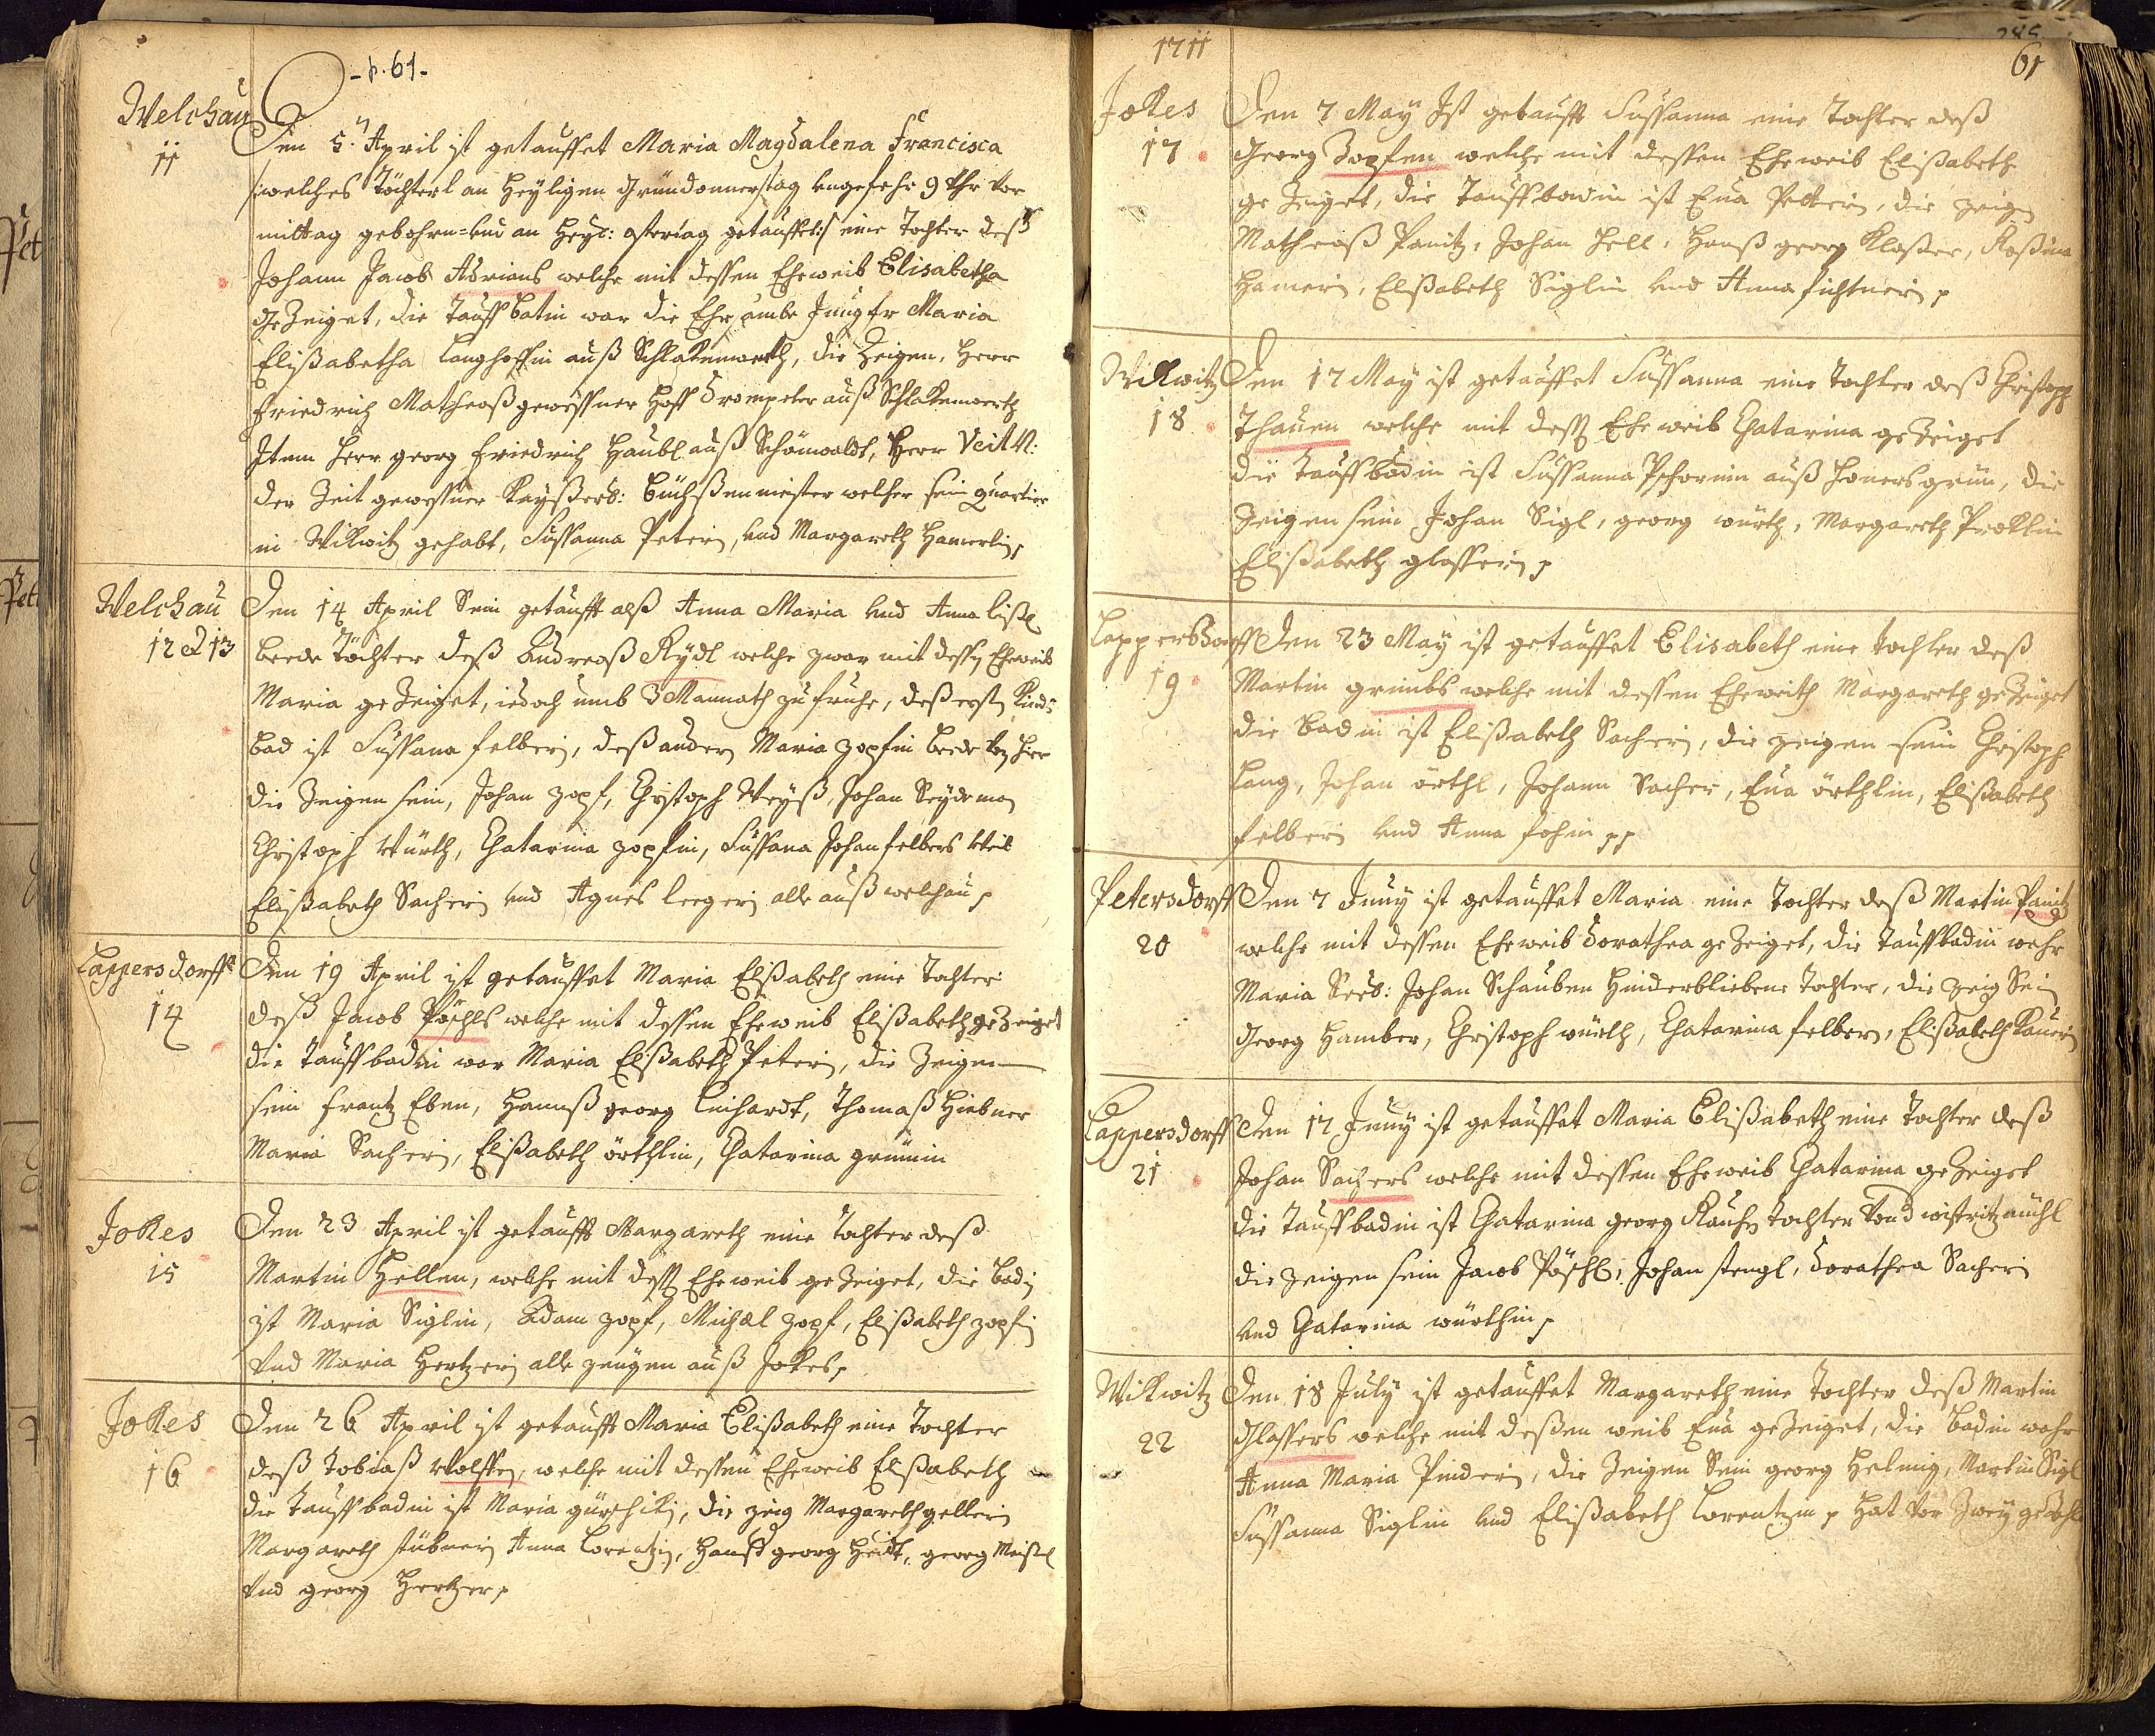 - p. 61 -
Welchau
11
Den 5. April ist getauffet Maria Magdalena Francisca
/:welches Töchterl an Heyligen Gründonnerstag ungefehr 9 Uhr Vor
mittag gebohrn= und an Heyl: ostertag getauffet:/ eine Tochter deß
Johann Jacob Adrians welche mit dessen Eheweib Elisabetha
geZeiget, die Tauff batin war die Jungfr Maria
Elißabetha Langhoffin auß Schlakenwerth, die Zeigen, Herr
Friedrich Matheaß gewessner Hoff Trompeter auß Schlakenwerth
Item Herr georg Friedrich Häubl auß Schönwaldt, Herr Veit N:
der Zeit gewessner Kayßerl: Büchßenmeister welcher sein quartier
in Wikwitz gehabt, Sussanna Peterin, und Margareth Hamerlin,
Welchau
12 et 13
Den 14 April Sein getaufft alß Anna Maria und Anna Lißl
beede Töchter deß Andreaß Rydl welche zwar mit dessen Eheweib
Maria geZeiget, iedoch umb 3 Mannath zu fruhe, deß ersten Kinds
bad ist Sussana felberin, deß andern Maria Zopfin beede von hier
die Zeigen sein, Johan Zopf, Christoph Weyß, Johan Seydeman
Christoph Würth, Chatarina Zopfin, Sussana Johan felbers Weib
Elißabeth Sacherin und Agnes Leegerin alle auß welchau,
Lappersdorff
14
Den 19 April ist getauffet Maria Elißabeth eine Tochter
deß Jacob Pöschls welche mit dessen Eheweib Elißabeth geZeiget
die Tauffbadin war Maria Elißabeth Peterin, die Zeigen
sein Frantz Eben, Hannß georg Leihardt, Thomaß Hiebner
Maria Sacherin, Elißabeth örthlin, Chatarina grümin
Jokes
15
Den 23 April ist getaufft Margareth eine Tochter deß
Martin Hellen, welche mit dessen Eheweib geZeiget, die badin
ist Maria Siglin, Adam Zopf, Michael Zopf, Elißabeth Zopfin
Und Maria Hertzerin alle Zeugen auß Jokes,
Jokes
16
Den 26 April ist getaufft Maria Elißabeth eine Tochter
deß Tobiaß Wolffen, welche mit dessen Eheweib Elißabeth
die Tauffbadin ist Maria, die Zeig Margareth gellerin
Margareth stübnerin Anna Lorentzin, Hanß georg Heidt, georg Meißl
Und georg Hertzer,
1711
61
Jokes
17
Den 7 May Ist getaufft Sussanna eine Tochter deß
Georg Zopfen welche mit dessen Eheweib Elißabeth
geZeiget, die Tauffbadin ist Eva Petterin, die Zeigen
Matheaß Panitz, Johan Hell, Hanß georg Kloßer, Roßina
Hamerin, Elißabeth Siglin und Anna fichtnerin,
Wikwitz
18
Den 17 May ist getauffet Sussanna eine Tochter deß Christoph
Thauen welche mit dessen Eheweib Chatarina geZeiget
die Tauffbadin ist Sussanna Pschernin auß Honersgrün, die
Zeigen sein Johan Sigl, georg würth, Margareth Proklin
Elißabeth glasserin,
Lappersdorff
19
Den 23 May ist getauffet Elisabeth eine Tochter deß
Martin grimbs welche mit dessen Eheweib Margareth geZeiget
die Badin ist Elißabeth Sacherin, die Zeigen sein Christoph
Lang, Johan örthl, Johann Sacher, Eva örthlin, Elißabeth
felberin und Anna
Petersdorff
20
Den 7 Juny ist getauffet Maria eine Tochter deß Martin Panitz
welche mit dessen Eheweib Dorathea geZeiget, die Tauffbadin wahr
Maria Seel: Johan Schauben Hinderbliebene Tochter, die Zeig Sein
Georg Hamber, Christoph würth, Chatarina felberin, Elißabeth Kauerin
Lappersdorff
21
Den 17 Juny ist getauffet Maria Elißabeth eine Tochter deß
Johan Sachers welche mit dessen Eheweib Chatarina geZeiget
die Tauffbadin ist Chatarina georg Tochter
die Zeigen sein Jacob Pöschl, Johan stengl, Dorathea Sacherin
und Chatarina würthin,
Wikwitz
22
Den 18 July ist getauffet Margareth eine Tochter deß Martin
Glassers welche mit deßen weib Eva geZeiget, die Badin wahr
Anna Maria Pinderin, die Zeigen Sein georg Helmig, Martin Sigl
Sussanna Siglin und Elißabeth Lorentzin, hat vor Zwey